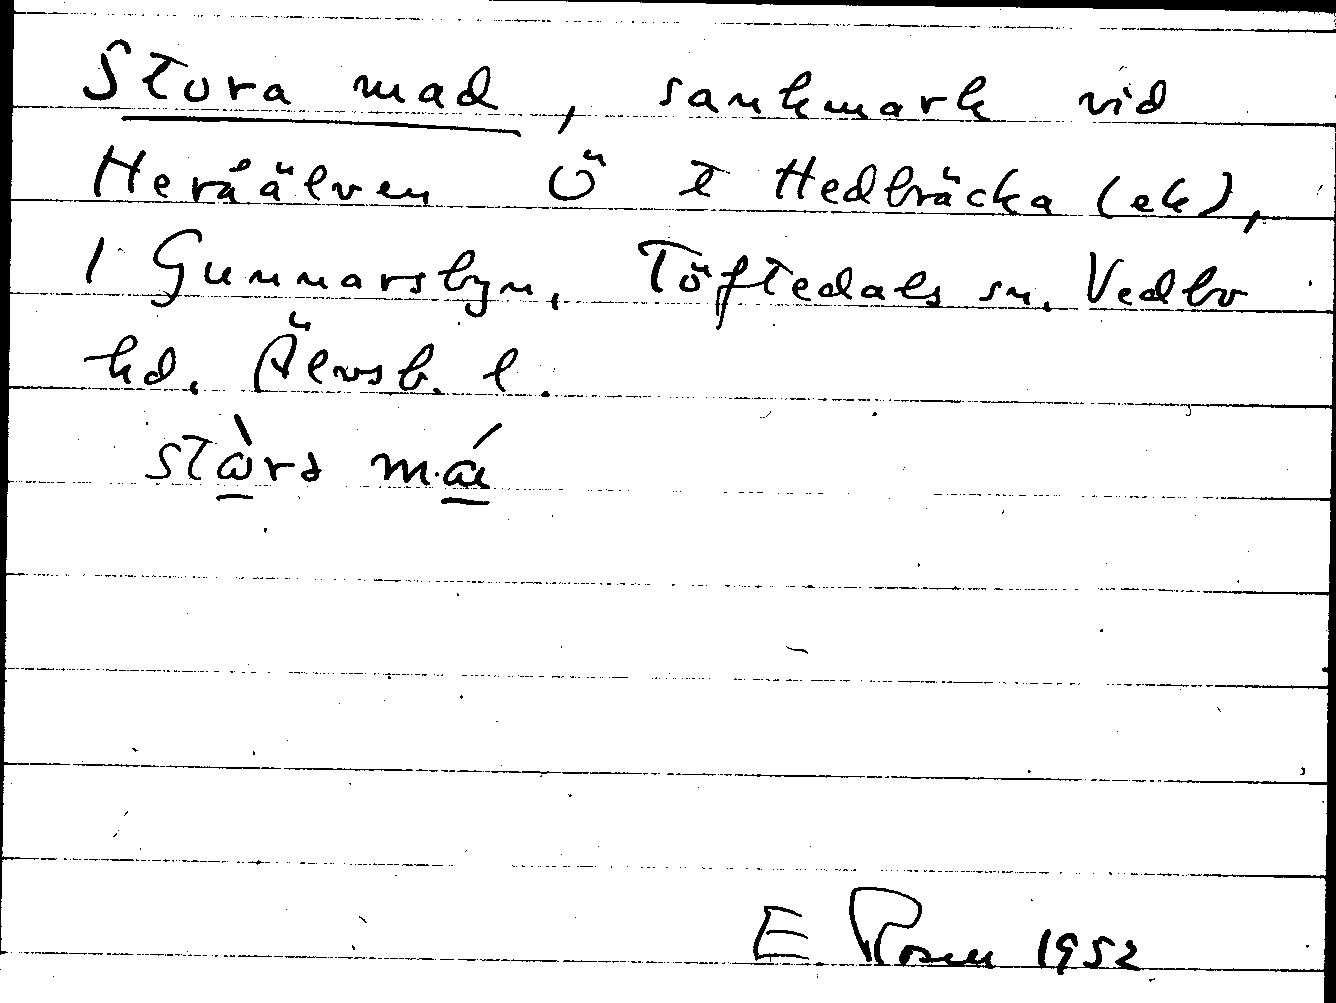 Stora mad, sankmark vid
Heråälven Ö I Hedbräcka (ek),
1 Gunnarsbyn, Töftedals sn. Vedbo
hd. Älvsb. l.
E. Rosen 1952